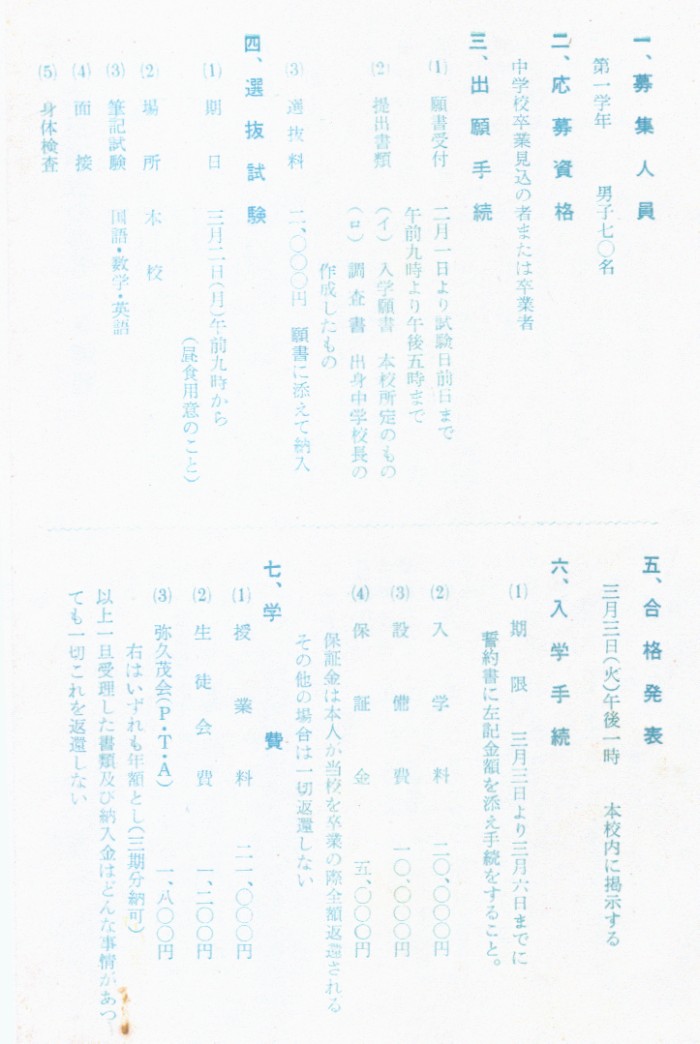 一、募集人員
第一学年 男子七〇名
二、応募資格
中学校卒業見込の者または卒業者
三、出願手続
(1) 願書受付 二月一日より試験日前日まで
午前九時より午後五時まで
(2) 提出書類 (イ) 入学願書 本校所定のもの
(ロ) 調査書 出身中学校長の
作成したもの
(3) 選抜料 二、〇〇〇円 願書に添えて納入
四、選抜試験
(1) 期日 三月二日(月)午前九時から
(昼食用意のこと)
(2) 場所 本校
(3) 筆記試験 国語・数学・英語
(4) 面接
(5) 身体検査
五、合格発表
三月三日(火)午後一時 本校内に掲示する
六、入学手続
(1) 期限 三月三日より三月六日までに
誓約書に左記金額を添え手続をすること。
(2) 入学料 二〇、〇〇〇円
(3) 設備費 一〇、〇〇〇円
(4) 保証金 五、〇〇〇円
保証金は本人が当校を卒業の際全額返還される
その他の場合は一切返還しない
七、学費
(1) 授業料 二一、〇〇〇円
(2) 生徒会費 一、二〇〇円
(3) 弥久茂会(P・T・A) 一、八〇〇円
右はいずれも年額とし(三期分納可)
以上一旦受理した書類及び納入金はどんな事情があつ
ても一切これを返還しない